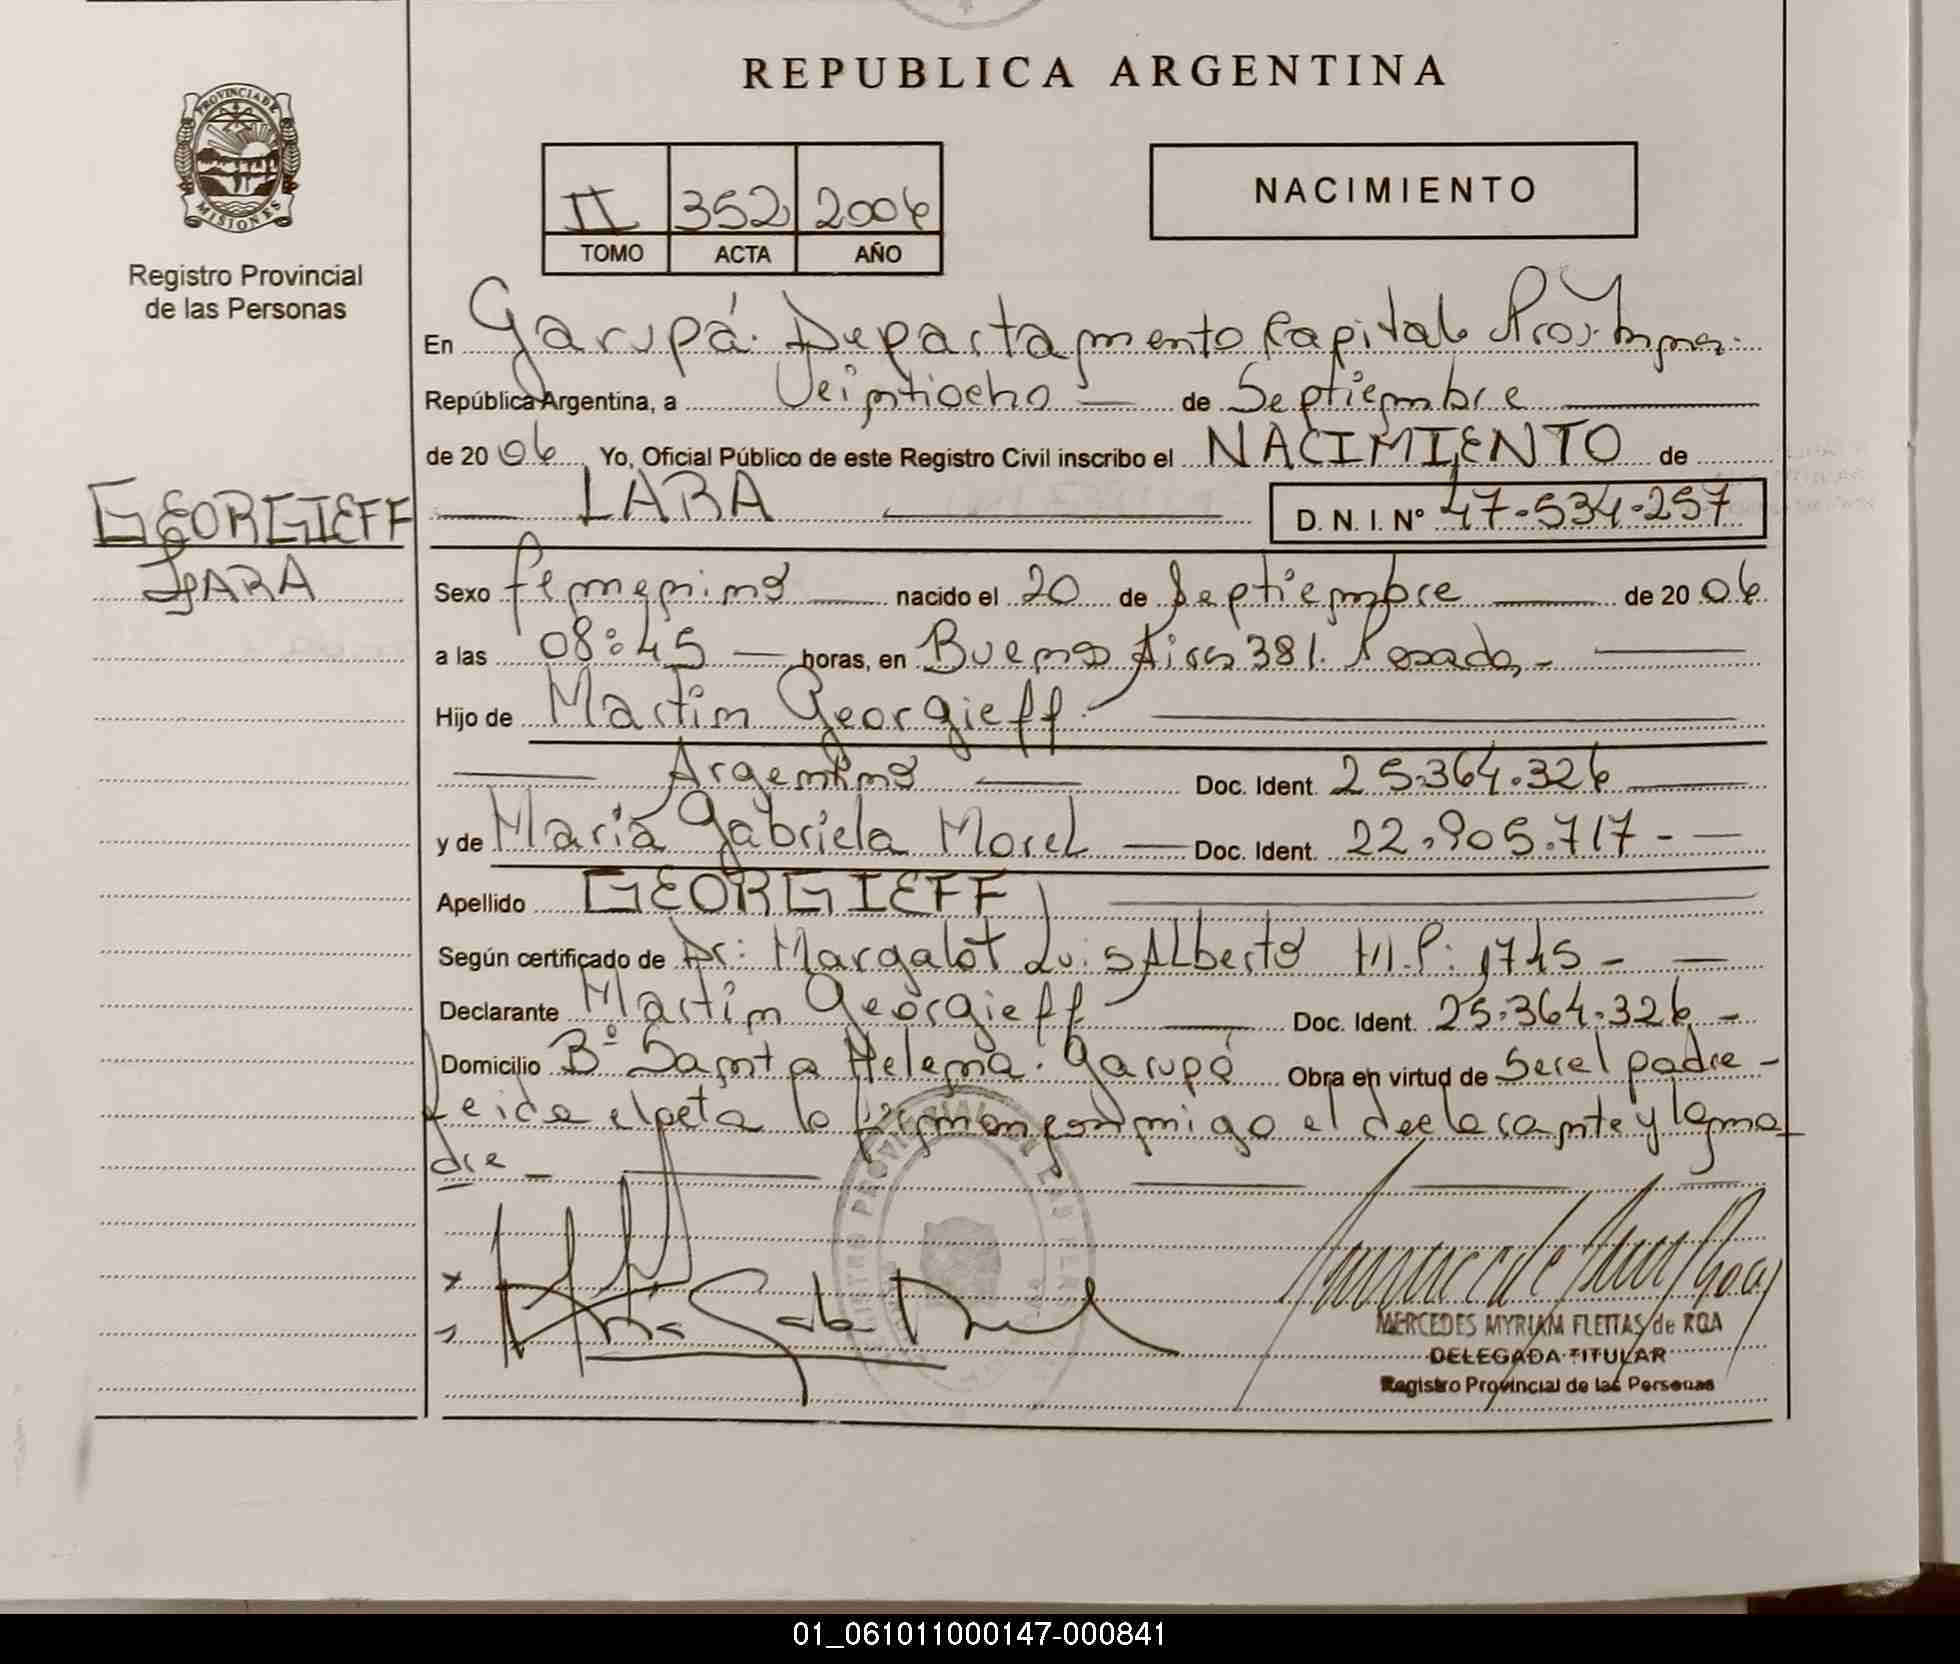 REPUBLICA ARGENTINA
PROVINCIA DE
MISIONES
Registro Provincial
de las Personas
II 352 2006
TOMO ACTA AÑO
NACIMIENTO
En Garupá. Departamento Capital
República Argentina, a Veintiocho — de Septiembre
de 20 06 Yo, Oficial Público de este Registro Civil inscribo el NACIMIENTO de
LARA D. N. I. Nº 47-534-257
GEORGIEFF
LARA
Sexo femenino nacido el 20 de Septiembre de 20 06
a las 08:45 — horas, en Buenos Aires 381. Posadas -
Hijo de Martin Georgieff.
Argentino Doc. Ident. 25.364.326
y de Maria Gabriela Morel — Doc. Ident. 22.905.717 - —
Apellido GEORGIEFF
Según certificado de Dr: Margalot Luis Alberto M.P: 1745 - —
Declarante Martin Georgieff Doc. Ident. 25.364.326 -
Domicilio Bº Santa Helena. Garupá Obra en virtud de Ser el padre -
Leida el acta la firman conmigo el declarante y la ma
dre -
Maria Gab Morel
MERCEDES MYRIAM FLEITAS de ROA
DELEGADA TITULAR
Registro Provincial de las Personas
01_061011000147-000841